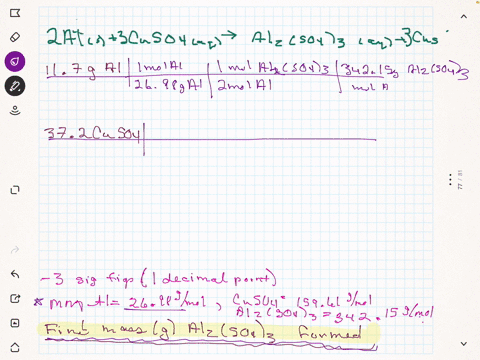 2Al(s)+3CuSO4(aq)→ Al2(SO4)3 (aq)+3Cus
11.7g Al | 1mol Al | 1 mol Al2(SO4)3 | 342.15g Al2(SO4)3
26.98g Al | 2mol Al | mol A
37.2 CuSO4
-3 sig figs (1 decimal point)
* mm Al= 26.98g/mol, CuSO4= 159.61 g/mol
Al2(SO4)3 = 342.15g/mol
Find mass (g) Al2(SO4)3 formed
77 / 81